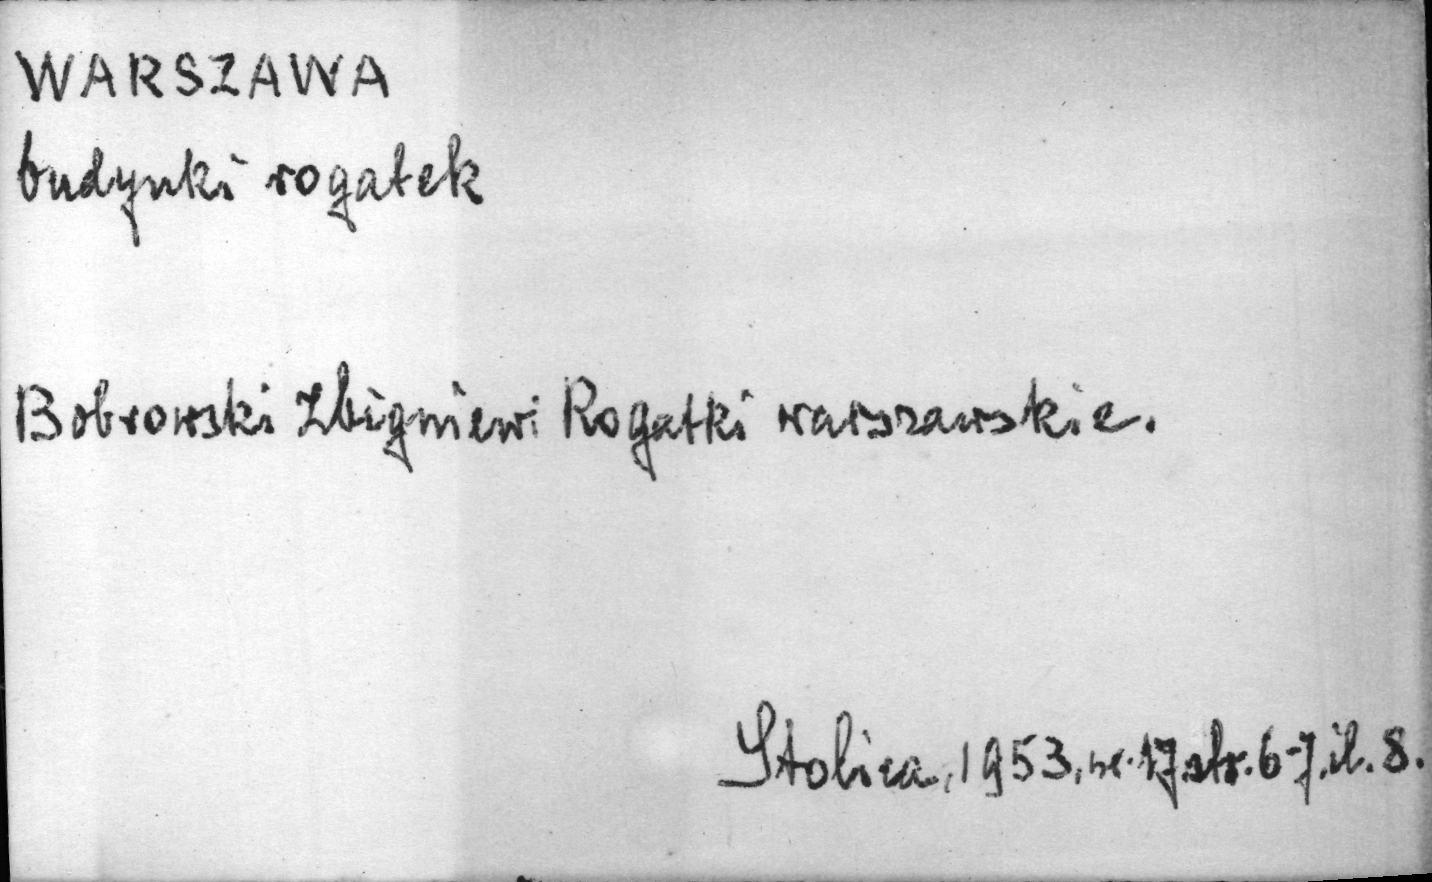 WARSZAWA
budynki rogatek
Bobrowski Zbigniew: Rogatki warszawskie.
Stolica, 1953, nr. 17, str. 6-7, il. 8.